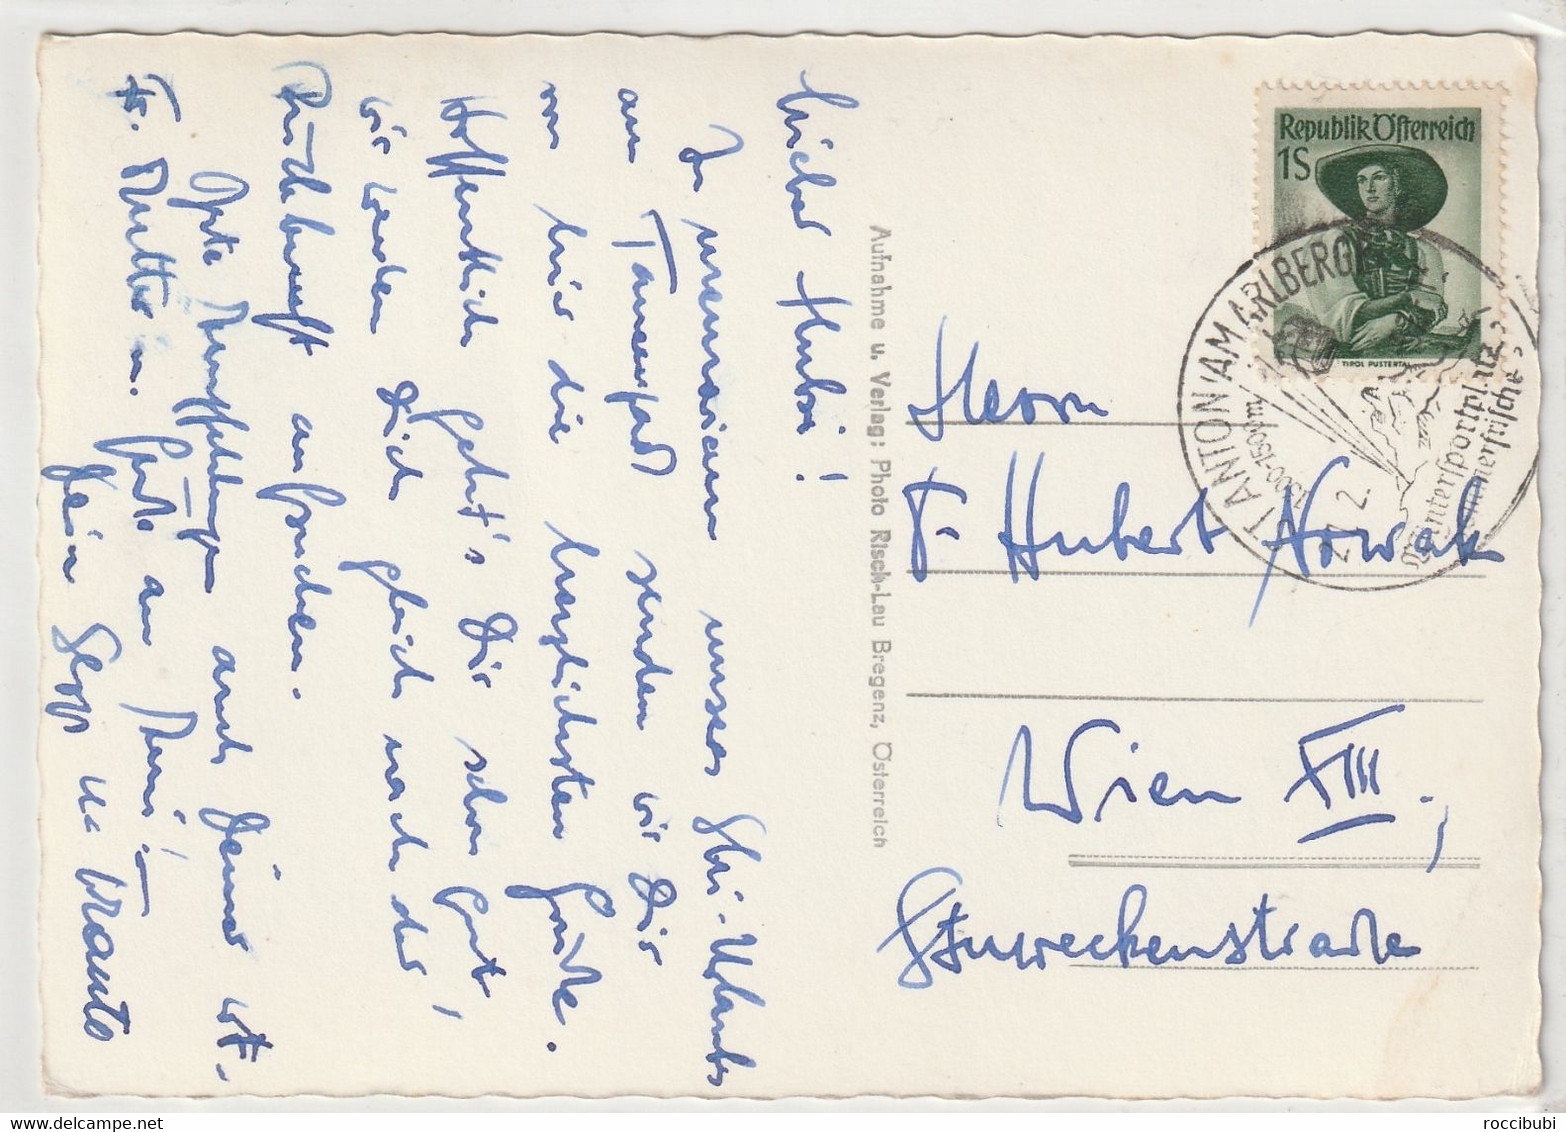 Lieber Hubsi!
In memoriam unseres Ski-Urlaubes
am Tannenhof senden wir Dir
von hier die herzlichsten Grüße.
Hoffentlich geht's Dir schon gut,
wir werden Dich gleich nach der
Rückkunft aufsuchen.
Gute Empfehlungen auch Deiner wt.
Fr. Mutter u. Gruß an
Dein u.
Aufnahme u. Verlag: Photo Risch-Lau Bregenz, Österreich
Republik Österreich
1S
TIROL PUSTERTAL
ST ANTON AM ARLBERG
1300-1500 m
Wintersportplatz
Sommerfrische
Herrn
Hubert Nowak
Wien XIII.,
Stuweckenstraße
roccibubi